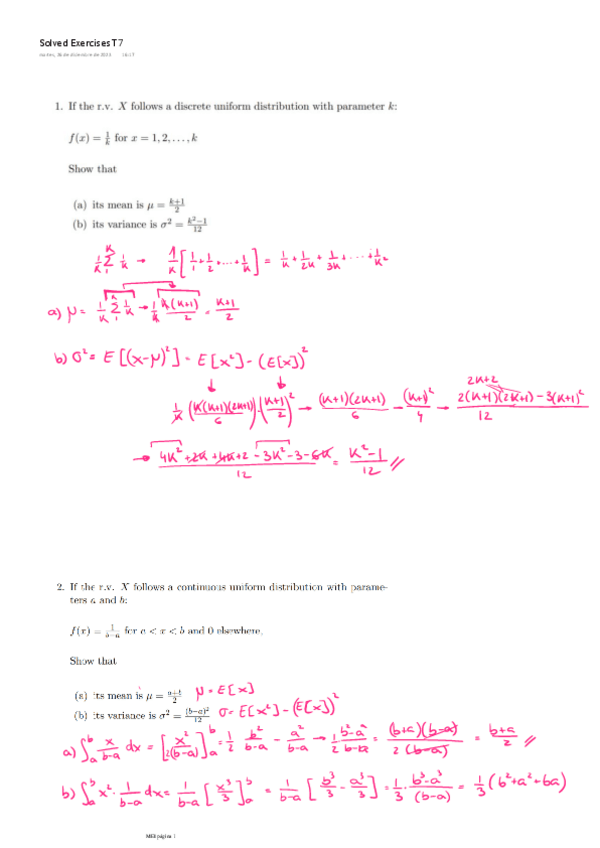 Solved Exercises T7
1. If the r.v. X follows a discrete uniform distribution with parameter k:
f(x) = 1/k for x = 1, 2, . . . , k
Show that
(a) its mean is μ = (k+1)/2
(b) its variance is σ² = (k²−1)/12
1/K Σ 1/K → 1/K [1/1 + 1/2 + ... + 1/K] = 1/K + 1/2K + 1/3K + ... + 1/K²
a) μ = 1/K Σ 1/K → 1/K K(K+1)/2 = (K+1)/2
b) σ² = E[(x-μ)²] = E[x²] - (E[x])²
2K+2
1/K (K(K+1)(2K+1)/6) - ((K+1)/2)² → (K+1)(2K+1)/6 - (K+1)²/4 → (2(K+1)(2K+1) - 3(K+1)²)/12
→ (4K² + 2K + 4K + 2 - 3K² - 3 - 6K)/12 = (K²-1)/12 //
2. If the r.v. X follows a continuous uniform distribution with parame-
ters a and b:
f(x) = 1/(b−a) for a < x < b and 0 elsewhere,
Show that
(a) its mean is μ = (a+b)/2 μ = E[x]
(b) its variance is σ² = (b−a)²/12 σ = E[x²] - (E[x])²
a) ∫ₐᵇ x/(b-a) dx = [x²/2(b-a)]ₐᵇ = 1/2 b²/(b-a) - a²/(b-a) → 1/2 (b²-a²)/(b-a) = (b+a)(b-a)/2(b-a) = (b+a)/2 //
b) ∫ₐᵇ x² · 1/(b-a) dx = 1/(b-a) [x³/3]ₐᵇ = 1/(b-a) [b³/3 - a³/3] = 1/3 · (b³-a³)/(b-a) = 1/3 (b²+a²+ba)